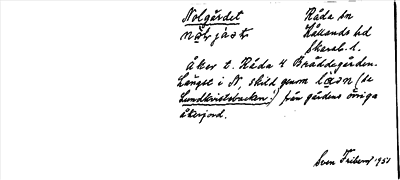 Nolgärdet Råda sn
Kållands hd
Skarab. l.
Åker t. Råda 4 Bräddegården.
Längst i N, skild genom (se
Lundkristbacken!) från gårdens övriga
åkerjord.
Sven 1951